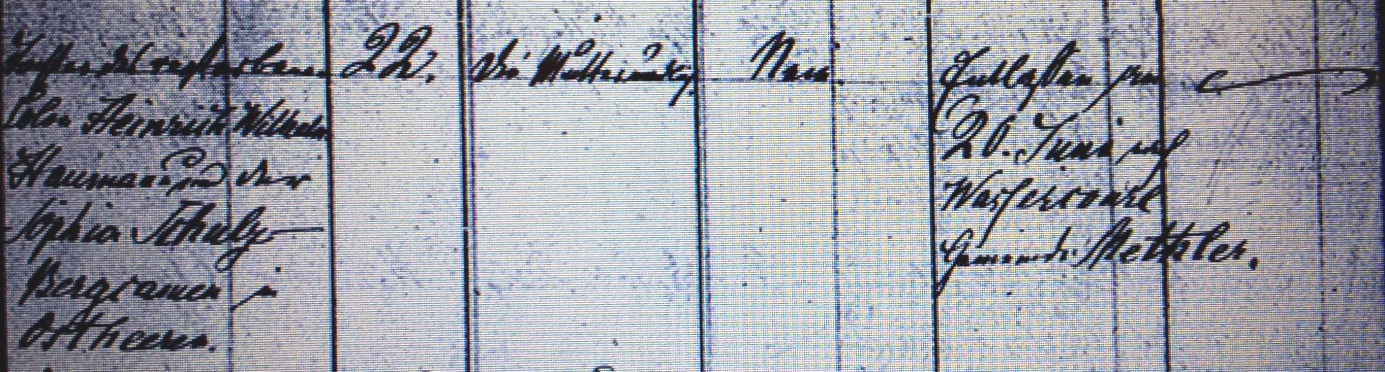 Tochter des verstorbenen
Colon Heinrich Wilhelm
Hausmann und der
Sophia Schulze
Bergcamen in
Ostheeren.
22.
Die Mutter mündig.
Nein.
Entlassen zum
20. Juni nach
Wassercourl
Gemeinde Methler.